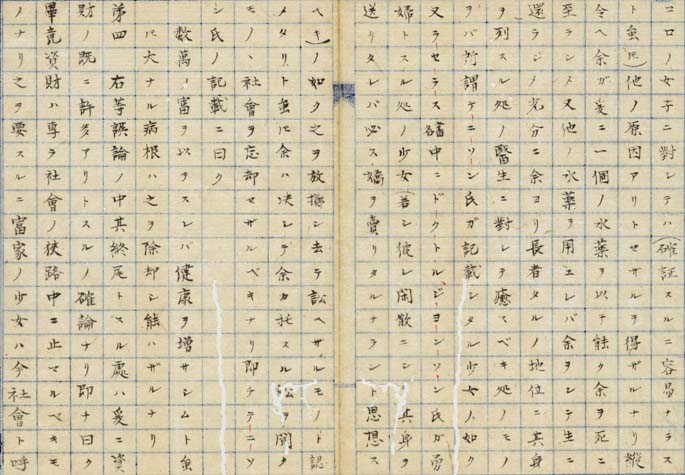 コロノ女子ニ對シテハ(確証スルニ容易ナラス
ト虽𪜈)他ノ原因アリトセザルヲ得ザルナリ縦
令ヘ余ガ爰ニ一個ノ水薬ヲ以テ能ク余ヲ死ニ
至ラシメ又他ノ水薬ヲ用ユレバ余ヲシテ生ニ
還ラシメ充分ニ余ヨリ長者タルノ地位ニ其身
ヲ列スル処ノ醫生ニ對シテ癒スベキ処ノモノ
ヲバ所謂テニソン氏ガ記載シタル少女ノ如ク
又ラセラス書中ニドクトルジヨーンソン氏ガ勇
婦トスル処ノ少女(若シ彼レ閑散ニシ 其身ヲ
送リタレバ必ス嬌ヲ賣リタルナラント思想ス
ヘキ)ノ如ク之ヲ放擲シ去テ訟ヘザルモノト認
メタリト虽𪜈余ハ决シテ余カ托スル訟ヲ聞ク
モノハ社會ヲ忘却セザルベキナリ即チテニーソ
ン氏ノ記載ニ曰ク
数萬ノ富ヲ以テスレバ健康ヲ増サシムト虽
𪜈大ナル病根ハ之ヲ除却シ能ハザルナリ
第四 右等誤論ノ中其終尾トスル處ハ爰ニ資
財ノ既ニ許多アリトスルノ確論ナリ即ナ曰ク
畢竟資財ハ専ラ社會ノ狭路中ニ止マルベキモ
ノナリ之ヲ要スルニ富家ノ少女ハ今社會ト呼